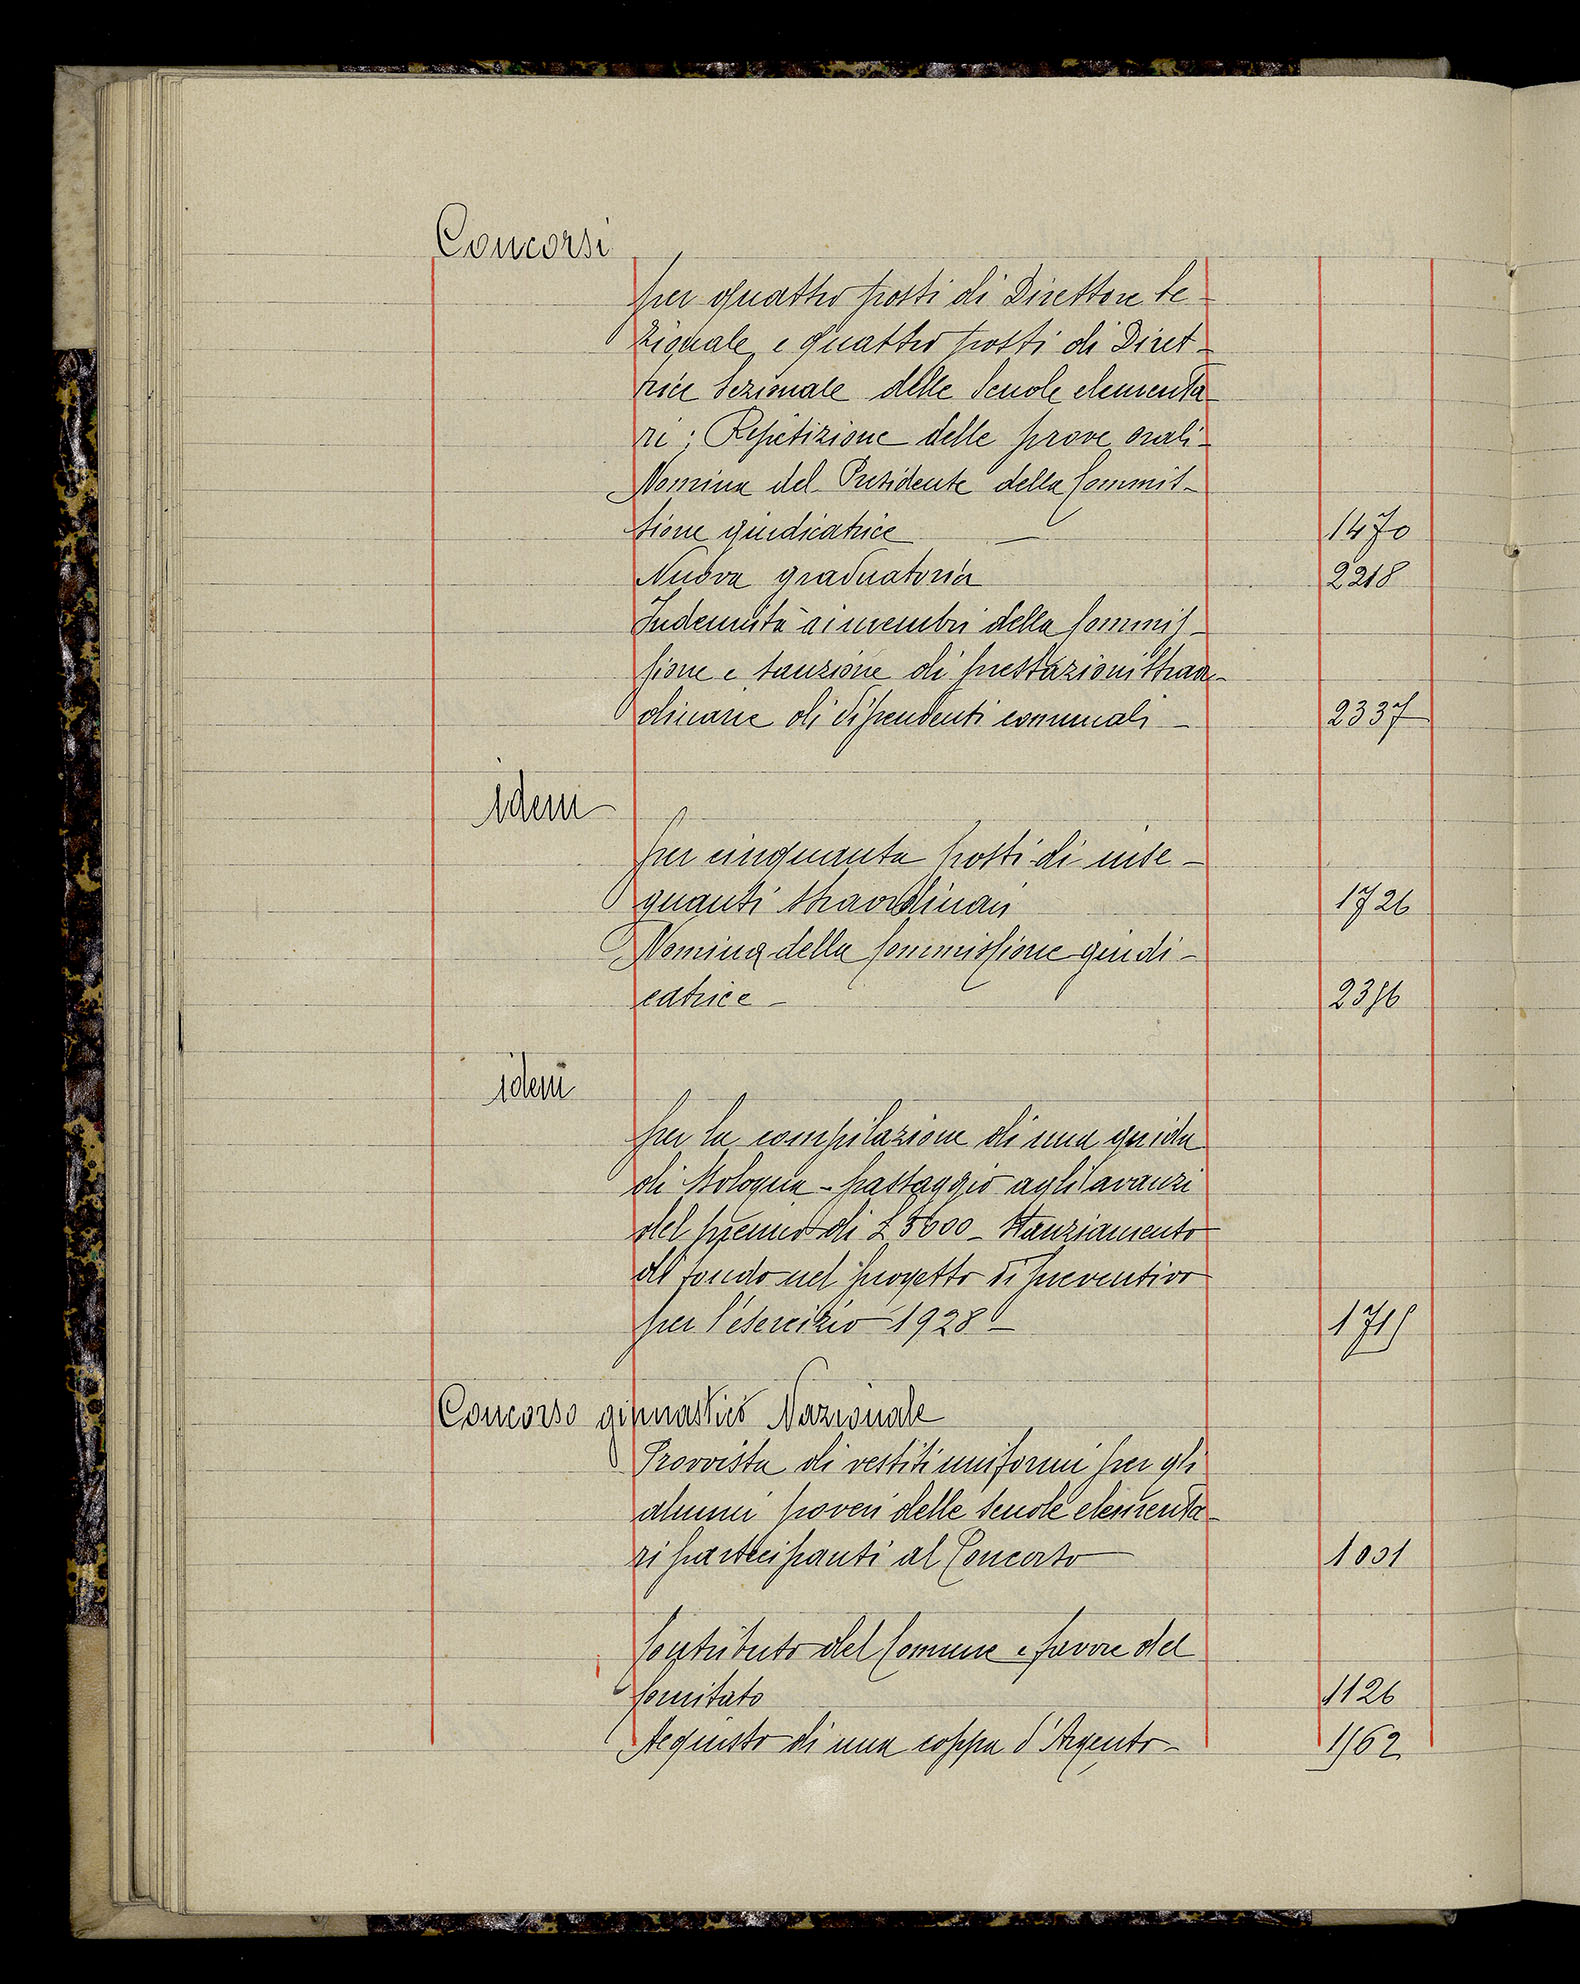 Concorsi
per quattro posti di Direttore Se-
zionale e quattro posti di Diret-
trice Sezionale delle Scuole elementa
ri; Ripetizione delle prove orali-
Nomina del Presidente della Commis-
sione giudicatrice — 1470
Nuova graduatoria 2218
Indennità ai membri della Commis-
sione e sanzione di prestazioni straor-
dinarie di dipendenti comunali — 2337
idem
per cinquanta posti di inse-
gnanti straordinari 1726
Nomina della Commissione giudi-
catrice -
idem
per la compilazione di una guida
di Bologna - passaggio agli avanzi
del premio di £ 5600 - Stanziamento
del fondo nel progetto di preventivo
per l'esercizio 1928 -
Concorso ginnastico Nazionale
Provvista di vestiti uniformi per gli
alunni poveri delle scuole elementa-
ri partecipanti al Concorso 1001
Contributo del Comune a favore del
Comitato 1126
Acquisto di una coppa d'Argento-